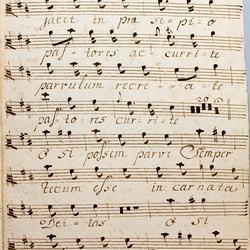 jacet in præ si-pi-o
pas-tores ac-curri-te
parvulum recre-a te
20
pas-to-res cur-ri-te
O si possem parvi Semper
tecum esse in carnata
Dei-tas O si